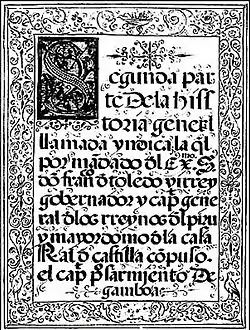 Segunda par
te Dela hiſſ
toria general
llamada yndica la q̃l
por mãdado õl Exᵐᵒ. S
dõ franᶜᵒ õ toledo virrey
gobernador y capᵃ gene
ral õlos rreynos õl piru
y mayordomo õ la caſa
Ral õ caſtilla cõpuſo.
el capᵃ pᵒ ſarmiento De
gamboa